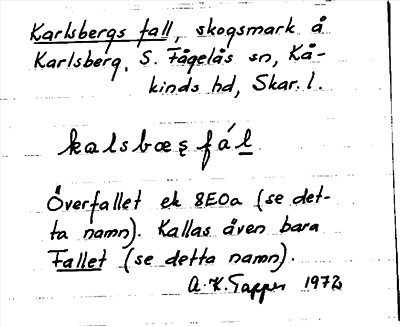 Karlsbergs fall, skogsmark å
Karlsberg, S. Fågelås sn, Kå-
kinds hd, Skar. l.
kalsbæʂ fál
Överfallet ek 8E0a (se det-
ta namn). Kallas även bara
Fallet (se detta namn).
A.K. Tapper 1972